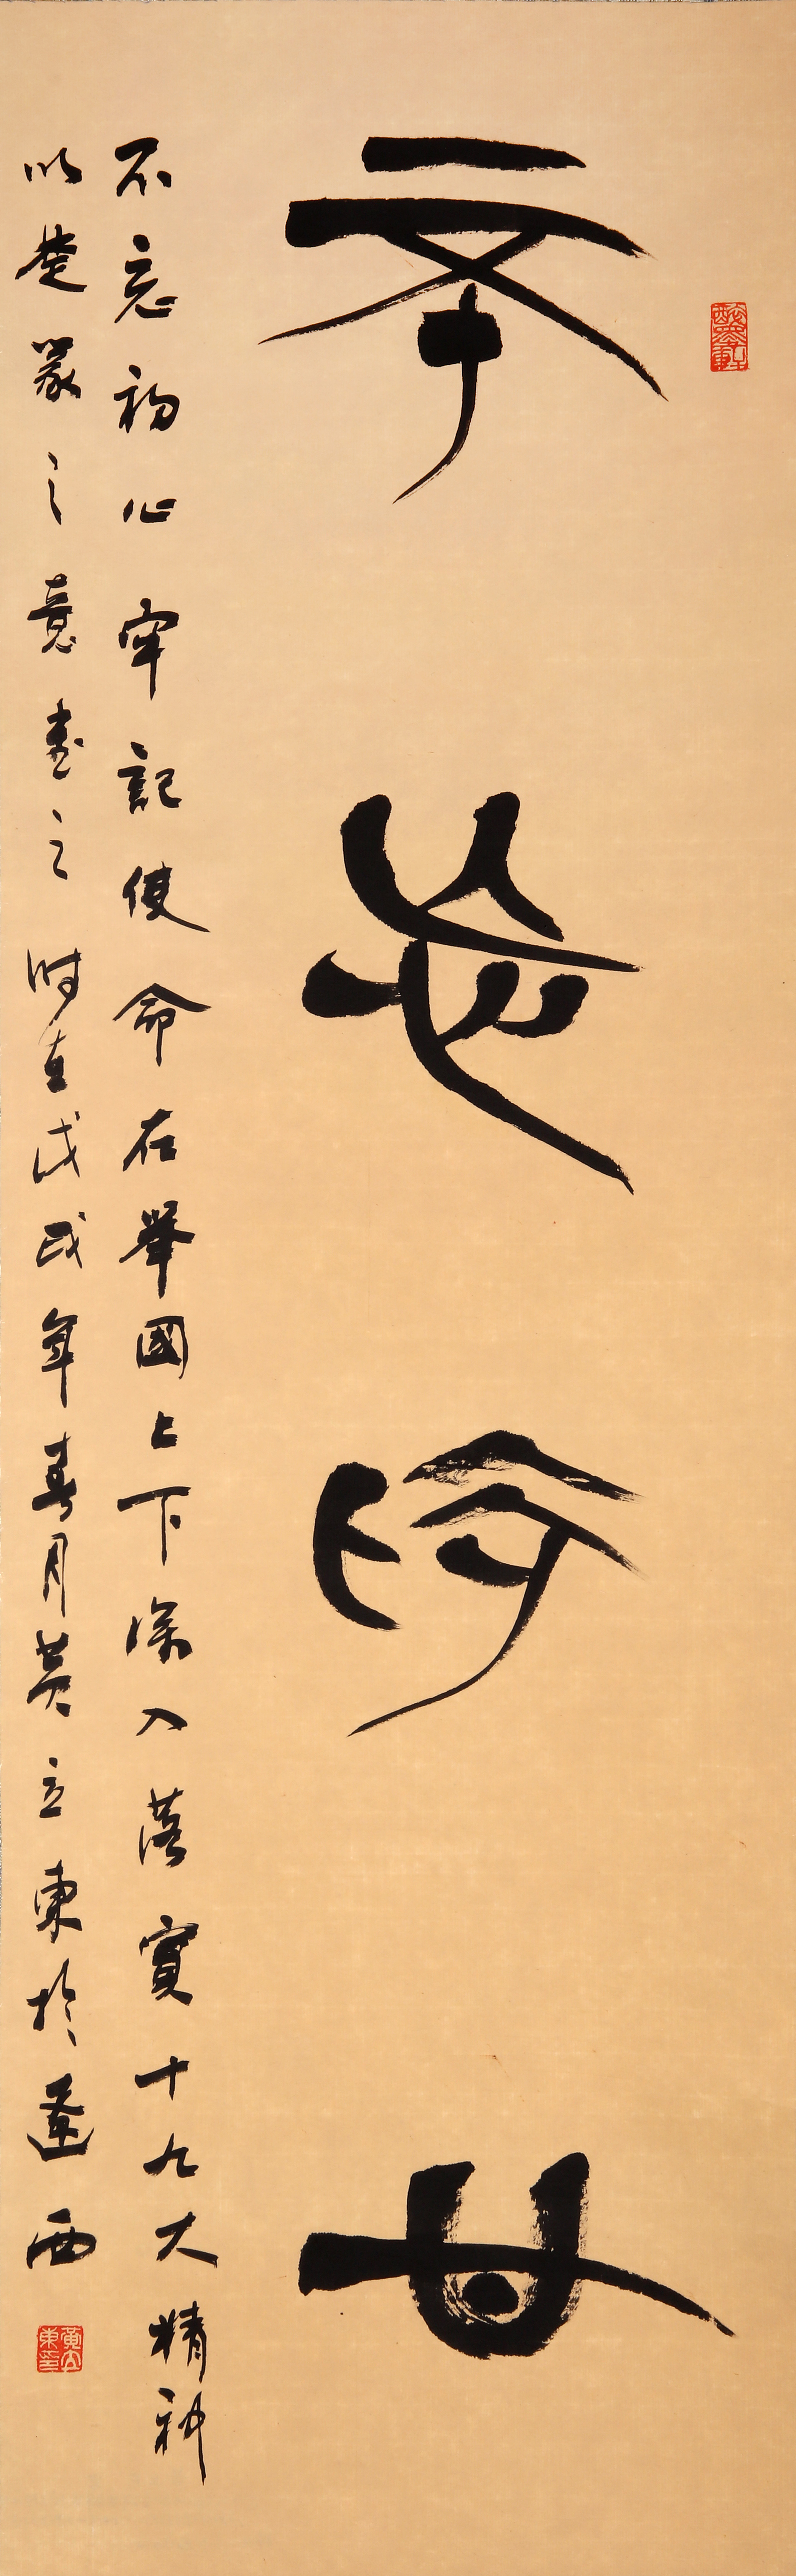 不忘初心
不忘初心牢記使命在舉國上下深入落實十九大精神
以楚篆之意書之時在戊戌年春月黃立東於遼西
黃立東印